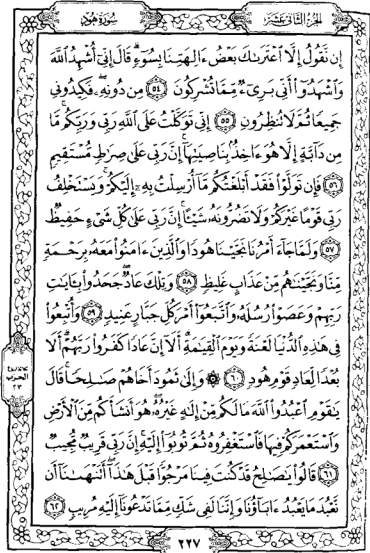 الجزء الثاني عشر
سورة هود
إِن نَّقُولُ إِلَّا ٱعْتَرَىٰكَ بَعْضُ ءَالِهَتِنَا بِسُوٓءٍ قَالَ إِنِّيٓ أُشْهِدُ ٱللَّهَ
وَٱشْهَدُوٓا۟ أَنِّي بَرِيٓءٌ مِّمَّا تُشْرِكُونَ ٥٤ مِن دُونِهِۦ فَكِيدُونِي
جَمِيعًا ثُمَّ لَا تُنظِرُونِ ٥٥ إِنِّي تَوَكَّلْتُ عَلَى ٱللَّهِ رَبِّي وَرَبِّكُم مَّا
مِن دَآبَّةٍ إِلَّا هُوَ ءَاخِذٌۢ بِنَاصِيَتِهَآ إِنَّ رَبِّي عَلَىٰ صِرَٰطٍ مُّسْتَقِيمٍ
٥٦ فَإِن تَوَلَّوْا۟ فَقَدْ أَبْلَغْتُكُم مَّآ أُرْسِلْتُ بِهِۦٓ إِلَيْكُمْ وَيَسْتَخْلِفُ
رَبِّي قَوْمًا غَيْرَكُمْ وَلَا تَضُرُّونَهُۥ شَيْـًٔا إِنَّ رَبِّي عَلَىٰ كُلِّ شَيْءٍ حَفِيظٌ
٥٧ وَلَمَّا جَآءَ أَمْرُنَا نَجَّيْنَا هُودًا وَٱلَّذِينَ ءَامَنُوا۟ مَعَهُۥ بِرَحْمَةٍ
مِّنَّا وَنَجَّيْنَٰهُم مِّنْ عَذَابٍ غَلِيظٍ ٥٨ وَتِلْكَ عَادٌ جَحَدُوا۟ بِـَٔايَٰتِ
رَبِّهِمْ وَعَصَوْا۟ رُسُلَهُۥ وَٱتَّبَعُوٓا۟ أَمْرَ كُلِّ جَبَّارٍ عَنِيدٍ ٥٩ وَأُتْبِعُوا۟
فِي هَٰذِهِ ٱلدُّنْيَا لَعْنَةً وَيَوْمَ ٱلْقِيَٰمَةِ أَلَآ إِنَّ عَادًا كَفَرُوا۟ رَبَّهُمْ أَلَا
بُعْدًا لِّعَادٍ قَوْمِ هُودٍ ٦٠ ۞ وَإِلَىٰ ثَمُودَ أَخَاهُمْ صَٰلِحًا قَالَ
يَٰقَوْمِ ٱعْبُدُوا۟ ٱللَّهَ مَا لَكُم مِّنْ إِلَٰهٍ غَيْرُهُۥ هُوَ أَنشَأَكُم مِّنَ ٱلْأَرْضِ
وَٱسْتَعْمَرَكُمْ فِيهَا فَٱسْتَغْفِرُوهُ ثُمَّ تُوبُوٓا۟ إِلَيْهِ إِنَّ رَبِّي قَرِيبٌ مُّجِيبٌ
٦١ قَالُوا۟ يَٰصَٰلِحُ قَدْ كُنتَ فِينَا مَرْجُوًّا قَبْلَ هَٰذَآ أَتَنْهَىٰنَآ أَن
نَّعْبُدَ مَا يَعْبُدُ ءَابَآؤُنَا وَإِنَّنَا لَفِي شَكٍّ مِّمَّا تَدْعُونَآ إِلَيْهِ مُرِيبٍ ٦٢
الحزب
٢٣
٢٢٧